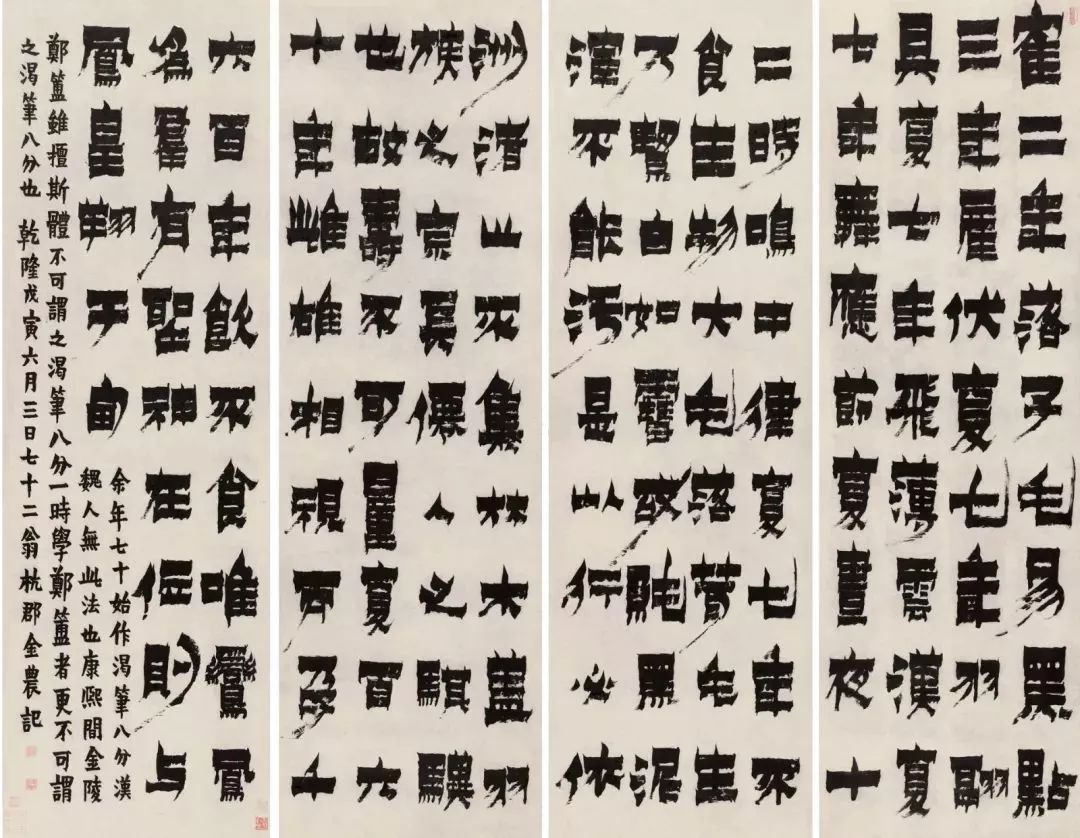 隺二年落子毛易黑點
三年雇伏夏七年羽翮
具夏七年飛薄雲漢夏
七年舞應節夏晝夜十
二時鳴中律夏七年不
食生物大毛落茸毛生
乃白如雪黑泥
不能汚是以行必依
洲渚止不集林木蓋羽
族之宗長僊人之騏驥
也故壽不可量夏百六
十年雌雄相視而孕千
六百年飲不食唯鸞鳳
爲羣有聖神在位則与
鳳皇翔于甸
余年七十始作渴筆八分漢
魏人無此法也康熙間金陵
鄭簠雖擅斯體不可謂之渴筆八分一時學鄭簠者更不可謂
之渴筆八分也 乾隆戊寅六月三日七十二翁杭郡金農記